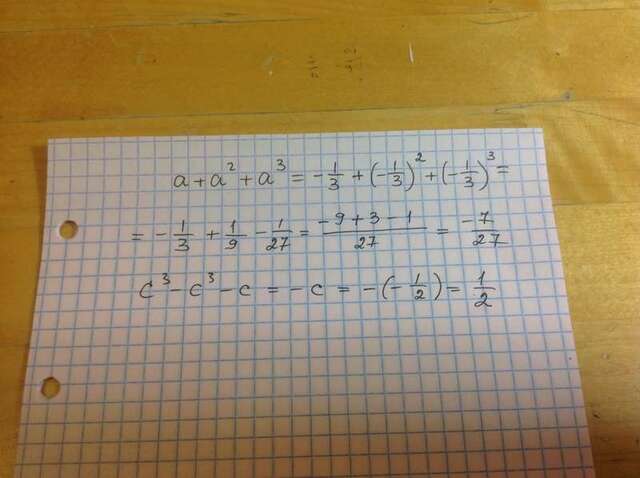 a + a² + a³ = -1/3 + (-1/3)² + (-1/3)³ =
= -1/3 + 1/9 - 1/27 = (-9 + 3 - 1)/27 = -7/27
c³ - c³ - c = -c = -(-1/2) = 1/2